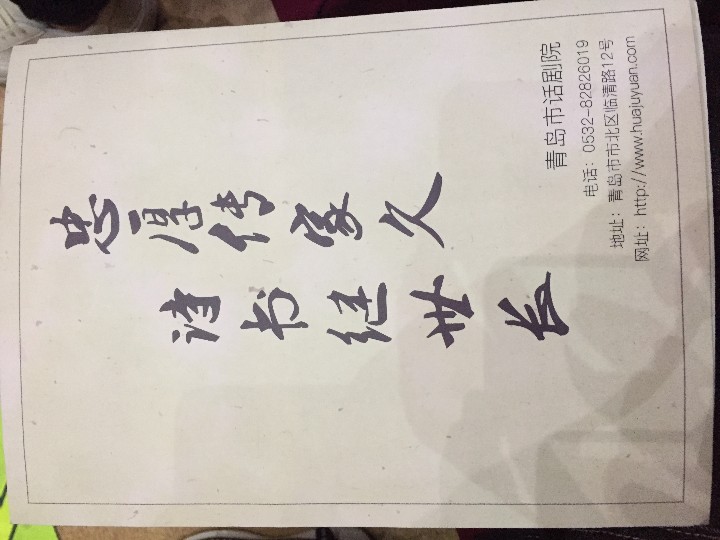 忠厚传家久
读书继世长
青岛市话剧院
电话：0532-82826019
地址：青岛市市北区临清路12号
网址：http://www.huajuyuan.com